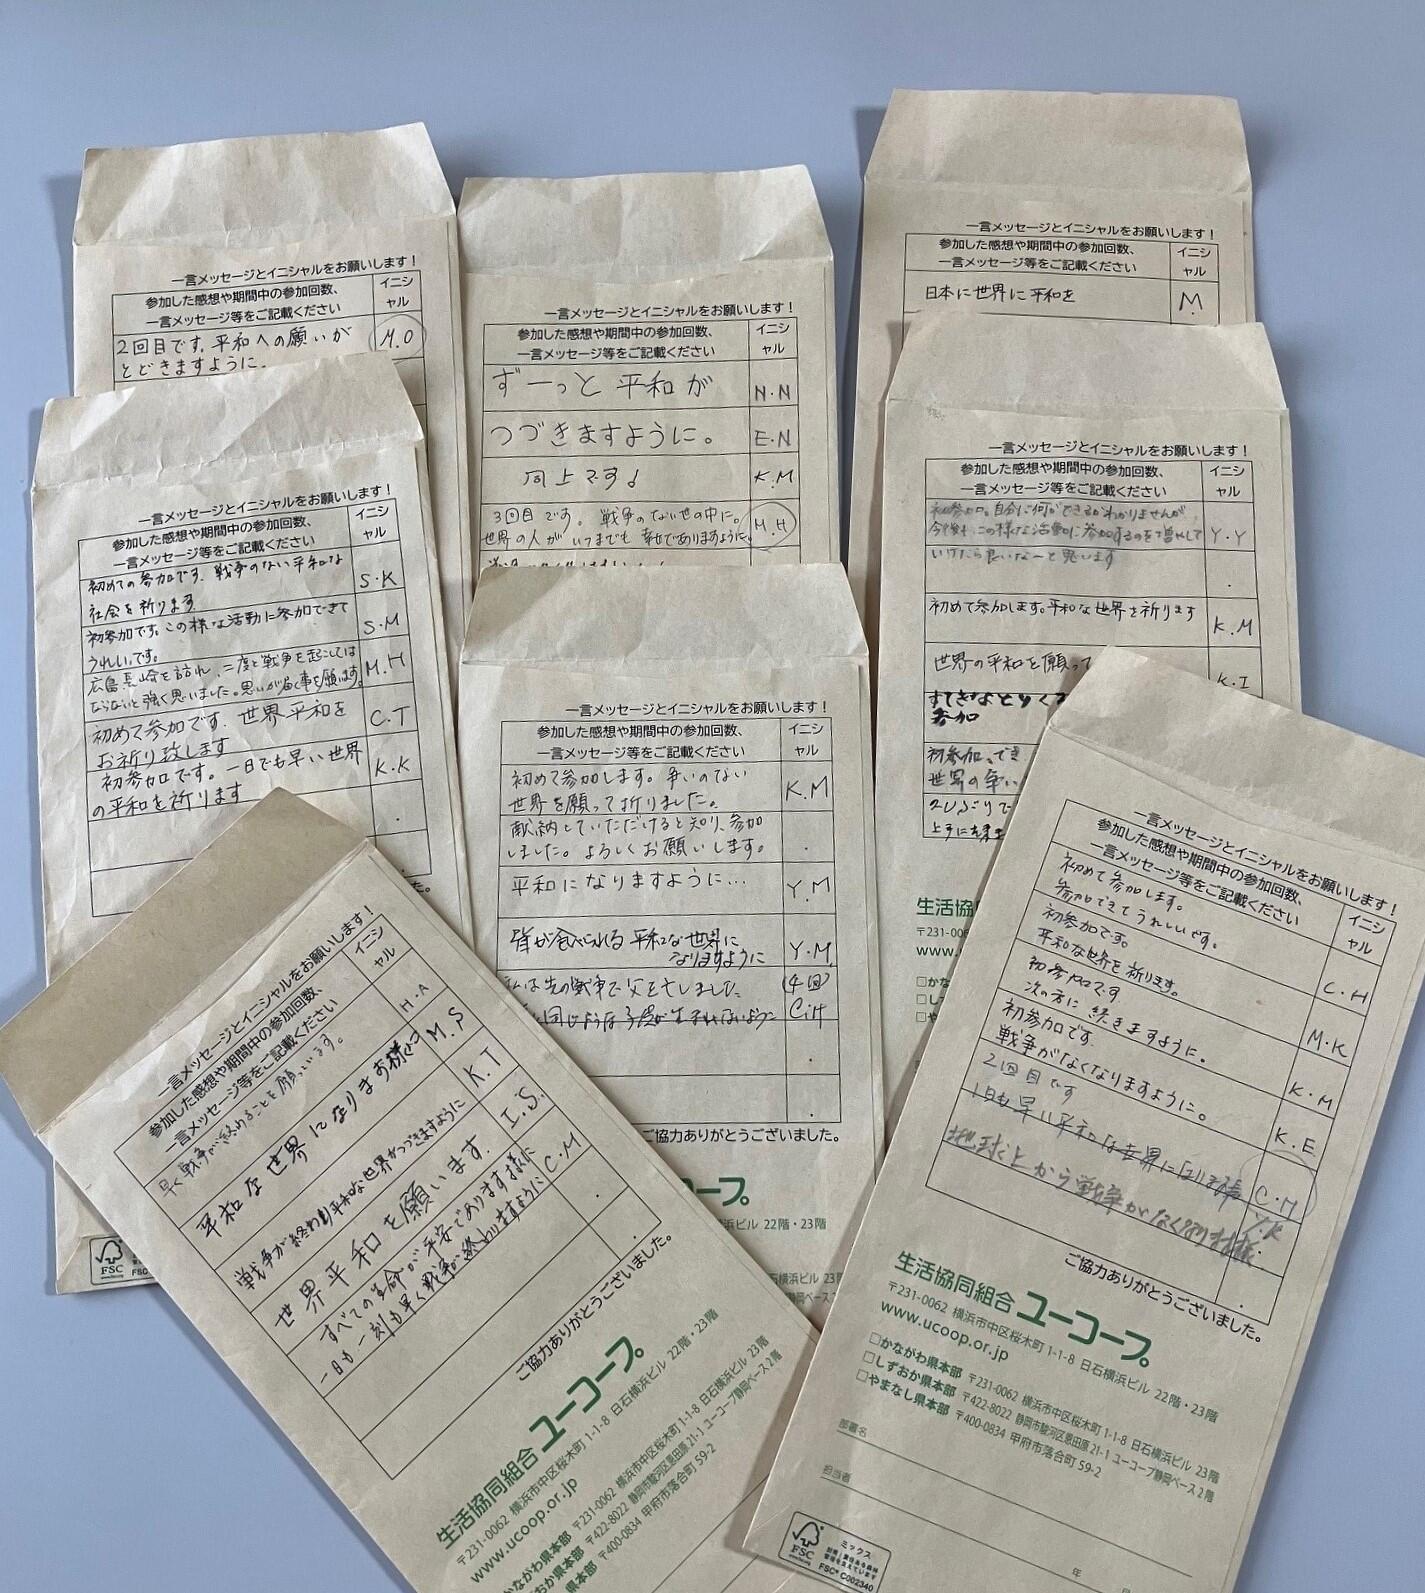 一言メッセージとイニシャルをお願いします!
参加した感想や期間中の参加回数、
一言メッセージ等をご記載ください
イニシャル
2回目です。平和への願いが
とどきますように。
M.O
一言メッセージとイニシャルをお願いします!
参加した感想や期間中の参加回数、
一言メッセージ等をご記載ください
イニシャル
ずーっと平和が
N.N
つづきますように。
E.N
同上です!
K.M
3回目です。戦争のない世の中に。
世界の人がいつまでも幸せでありますように。
M.H
一言メッセージとイニシャルをお願いします!
参加した感想や期間中の参加回数、
一言メッセージ等をご記載ください
イニシャル
日本に世界に平和を
M.
一言メッセージとイニシャルをお願いします!
参加した感想や期間中の参加回数、
一言メッセージ等をご記載ください
イニシャル
初めての参加です。戦争のない平和な
社会を祈ります
S.K
初参加です。この様な活動に参加できて
うれしいです。
S.M
広島長崎を訪れ、二度と戦争を起こしては
ならないと強く思いました。思いが届く事を願います。
M.H
初めて参加です。世界平和を
お祈り致します
C.T
初参加です。一日でも早い世界
の平和を祈ります
K.K
一言メッセージとイニシャルをお願いします!
参加した感想や期間中の参加回数、
一言メッセージ等をご記載ください
イニシャル
初参加。自分に何ができるかわかりませんが
今後も、この様な活動に参加するのを増やして
いけたら良いなーと
Y.Y
初めて参加します。平和な世界を祈ります
K.M
世界の平和を願って
K.I
参加
初参加、でき
世界の争い
生活協
〒231-006
www.
一言メッセージとイニシャルをお願いします!
参加した感想や期間中の参加回数、
一言メッセージ等をご記載ください
イニシャル
初めて参加します。争いのない
世界を願って折りました。
K.M
献納していただけると知り、参加
しました。よろしくお願いします。
平和になりますように…
Y.M
皆が食べられる平和な世界に
なりますように
Y.M.
私は先の戦争で父を亡しました
(4回)
C.H
ご協力ありがとうございました。
ープ
浜ビル 22階・23階
一言メッセージとイニシャルをお願いします!
参加した感想や期間中の参加回数、
一言メッセージ等をご記載ください
イニシャル
早く戦争が終わることを願っています。
H.A
平和な世界になりますように
M.S
戦争が終わり平和な世界がつづきますように
K.T
世界平和を願います.
I.S.
すべての生命が平安であります様に
一日も一刻も早く戦争が終わりますように
C.M
ご協力ありがとうございました。
生活協同組合 ユーコープ
〒231-0062 横浜市中区桜木町1-1-8 日石横浜ビル 22階・23階
www.ucoop.or.jp
かながわ県本部 〒231-0062 横浜市中区桜木町1-1-8 日石横浜ビル 23階
おか県本部 〒422-8022 静岡市駿河区恩田原21-1 ユーコープ静岡ベース2階
県本部 〒400-0834 甲府市落合町59-2
一言メッセージとイニシャルをお願いします!
参加した感想や期間中の参加回数、
一言メッセージ等をご記載ください
イニシャル
初めて参加します。
参加できてうれしいです。
C.H
初参加です。
平和な世界を祈ります。
M.K
初参加です
次の方に続きますように。
K.M
初参加です.
戦争がなくなりますように。
K.E.
2回目です
1日も早い平和な世界になります様
C.M
地球上から戦争がなくなります様.
Y.K
ご協力ありがとうございました。
生活協同組合 ユーコープ
〒231-0062 横浜市中区桜木町1-1-8 日石横浜ビル 22階・23階
www.ucoop.or.jp
□かながわ県本部 〒231-0062 横浜市中区桜木町1-1-8 日石横浜ビル 23階
□しずおか県本部 〒422-8022 静岡市駿河区恩田原21-1 ユーコープ静岡ベース2階
□やまなし県本部 〒400-0834 甲府市落合町59-2
部署名
担当者
年
FSC
ミックス
FSC® C002340
FSC